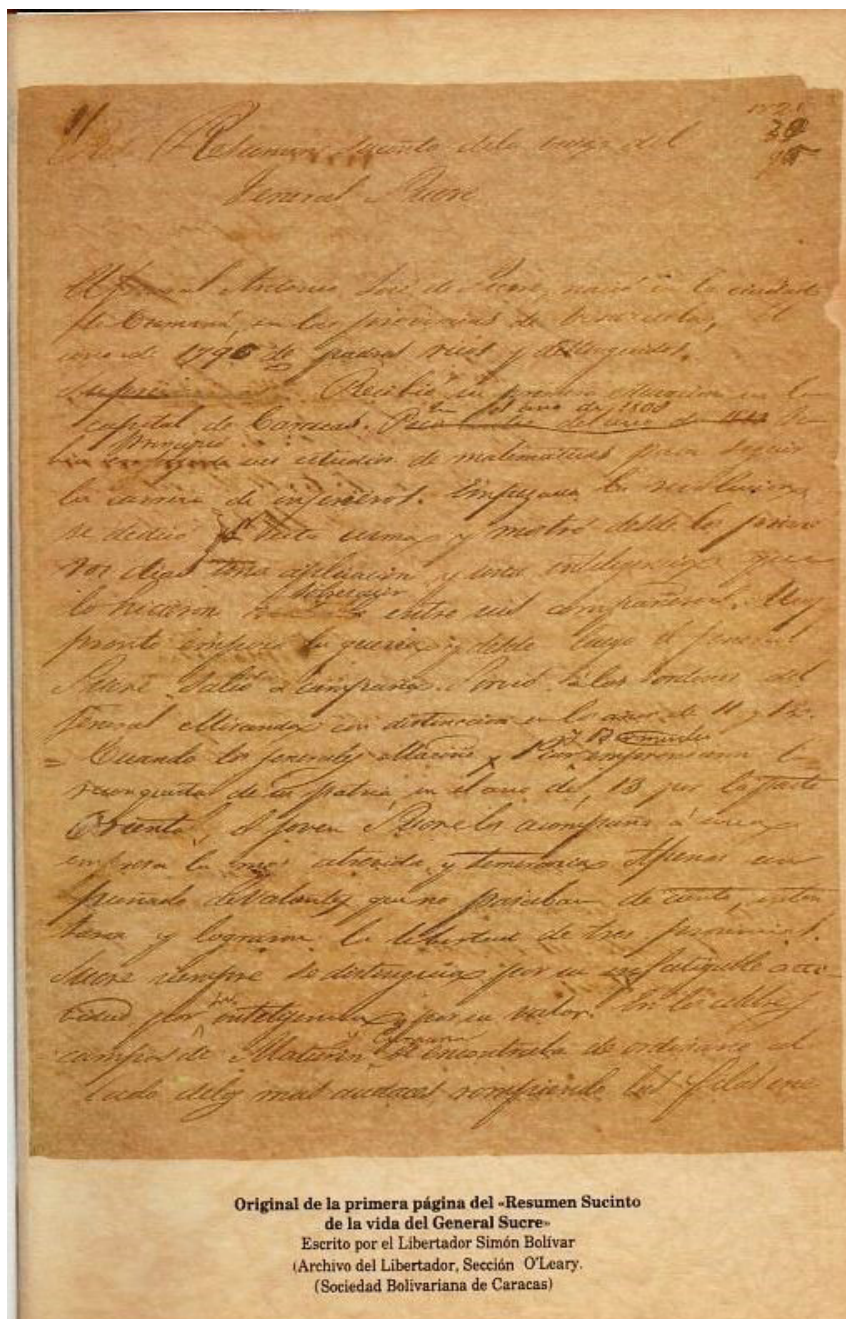 Resumen Sucinto de la vida del
General Sucre
El General Antonio José de Sucre, nació en la ciudad
de Cumaná, en las provincias de Venezuela, el
año de 1790 de padres ricos y distinguidos.
Recibió su primera educación en la
capital de Caracas. En el año de 1808
principió sus estudios de matematicas para seguir
la carrera de injenieros. Empezada la revolucion
se dedicó á esta arma y mostró desde los prime
ros dias una aplicacion y una inteligencia que
lo hicieron sobresalir entre sus compañeros. Muy
pronto empezó la guerra y desde luego el general
Sucre salió a campaña. Sirvió á las ordenes del
General Miranda con distincion en los años de 11 y 12.
Cuando los generales Mariño, Piar emprendieron la
reconquista de su patria en el año de 13 por la parte
Oriental, el joven Sucre los acompañó á una
empresa la mas atrevida y temeraria. Apenas un
puñado de valientes que no pasaban de ciento, inten
taron y lograron la libertad de tres provincias.
Sucre siempre se distinguia por su infatigable acti
vidad por su inteligencia y por su valor. En los celebres
campos de Maturin y Cumana se encontraba de ordinario al
lado de los mas audaces rompiendo las filas ene
Original de la primera página del «Resumen Sucinto
de la vida del General Sucre»
Escrito por el Libertador Simón Bolívar
(Archivo del Libertador, Sección O'Leary.
(Sociedad Bolivariana de Caracas)